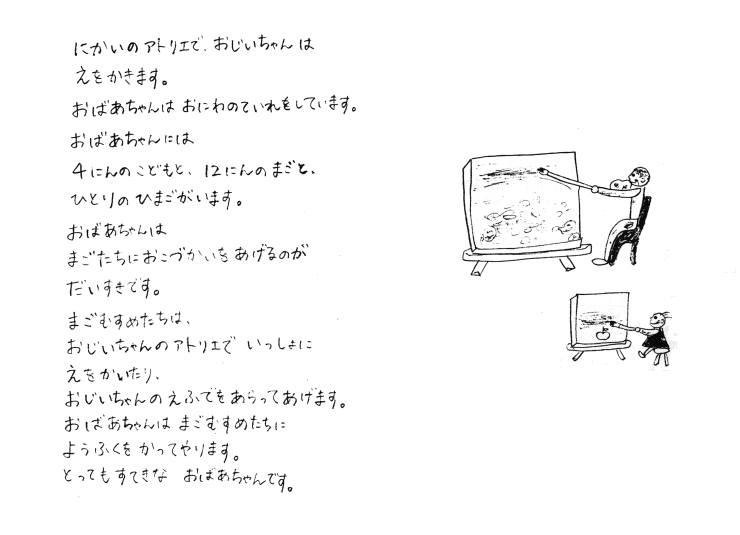 にかいのアトリエで、おじいちゃんは
えをかきます。
おばあちゃんは おにわのていれをしています。
おばあちゃんには
4にんのこどもと、12にんのまごと、
ひとりのひまごがいます。
おばあちゃんは
まごたちにおこづかいをあげるのが
だいすきです。
まごむすめたちは、
おじいちゃんのアトリエで いっしょに
えをかいたり、
おじいちゃんのえふでをあらってあげます。
おばあちゃんは まごむすめたちに
ようふくを かってやります。
とってもすてきな おばあちゃんです。